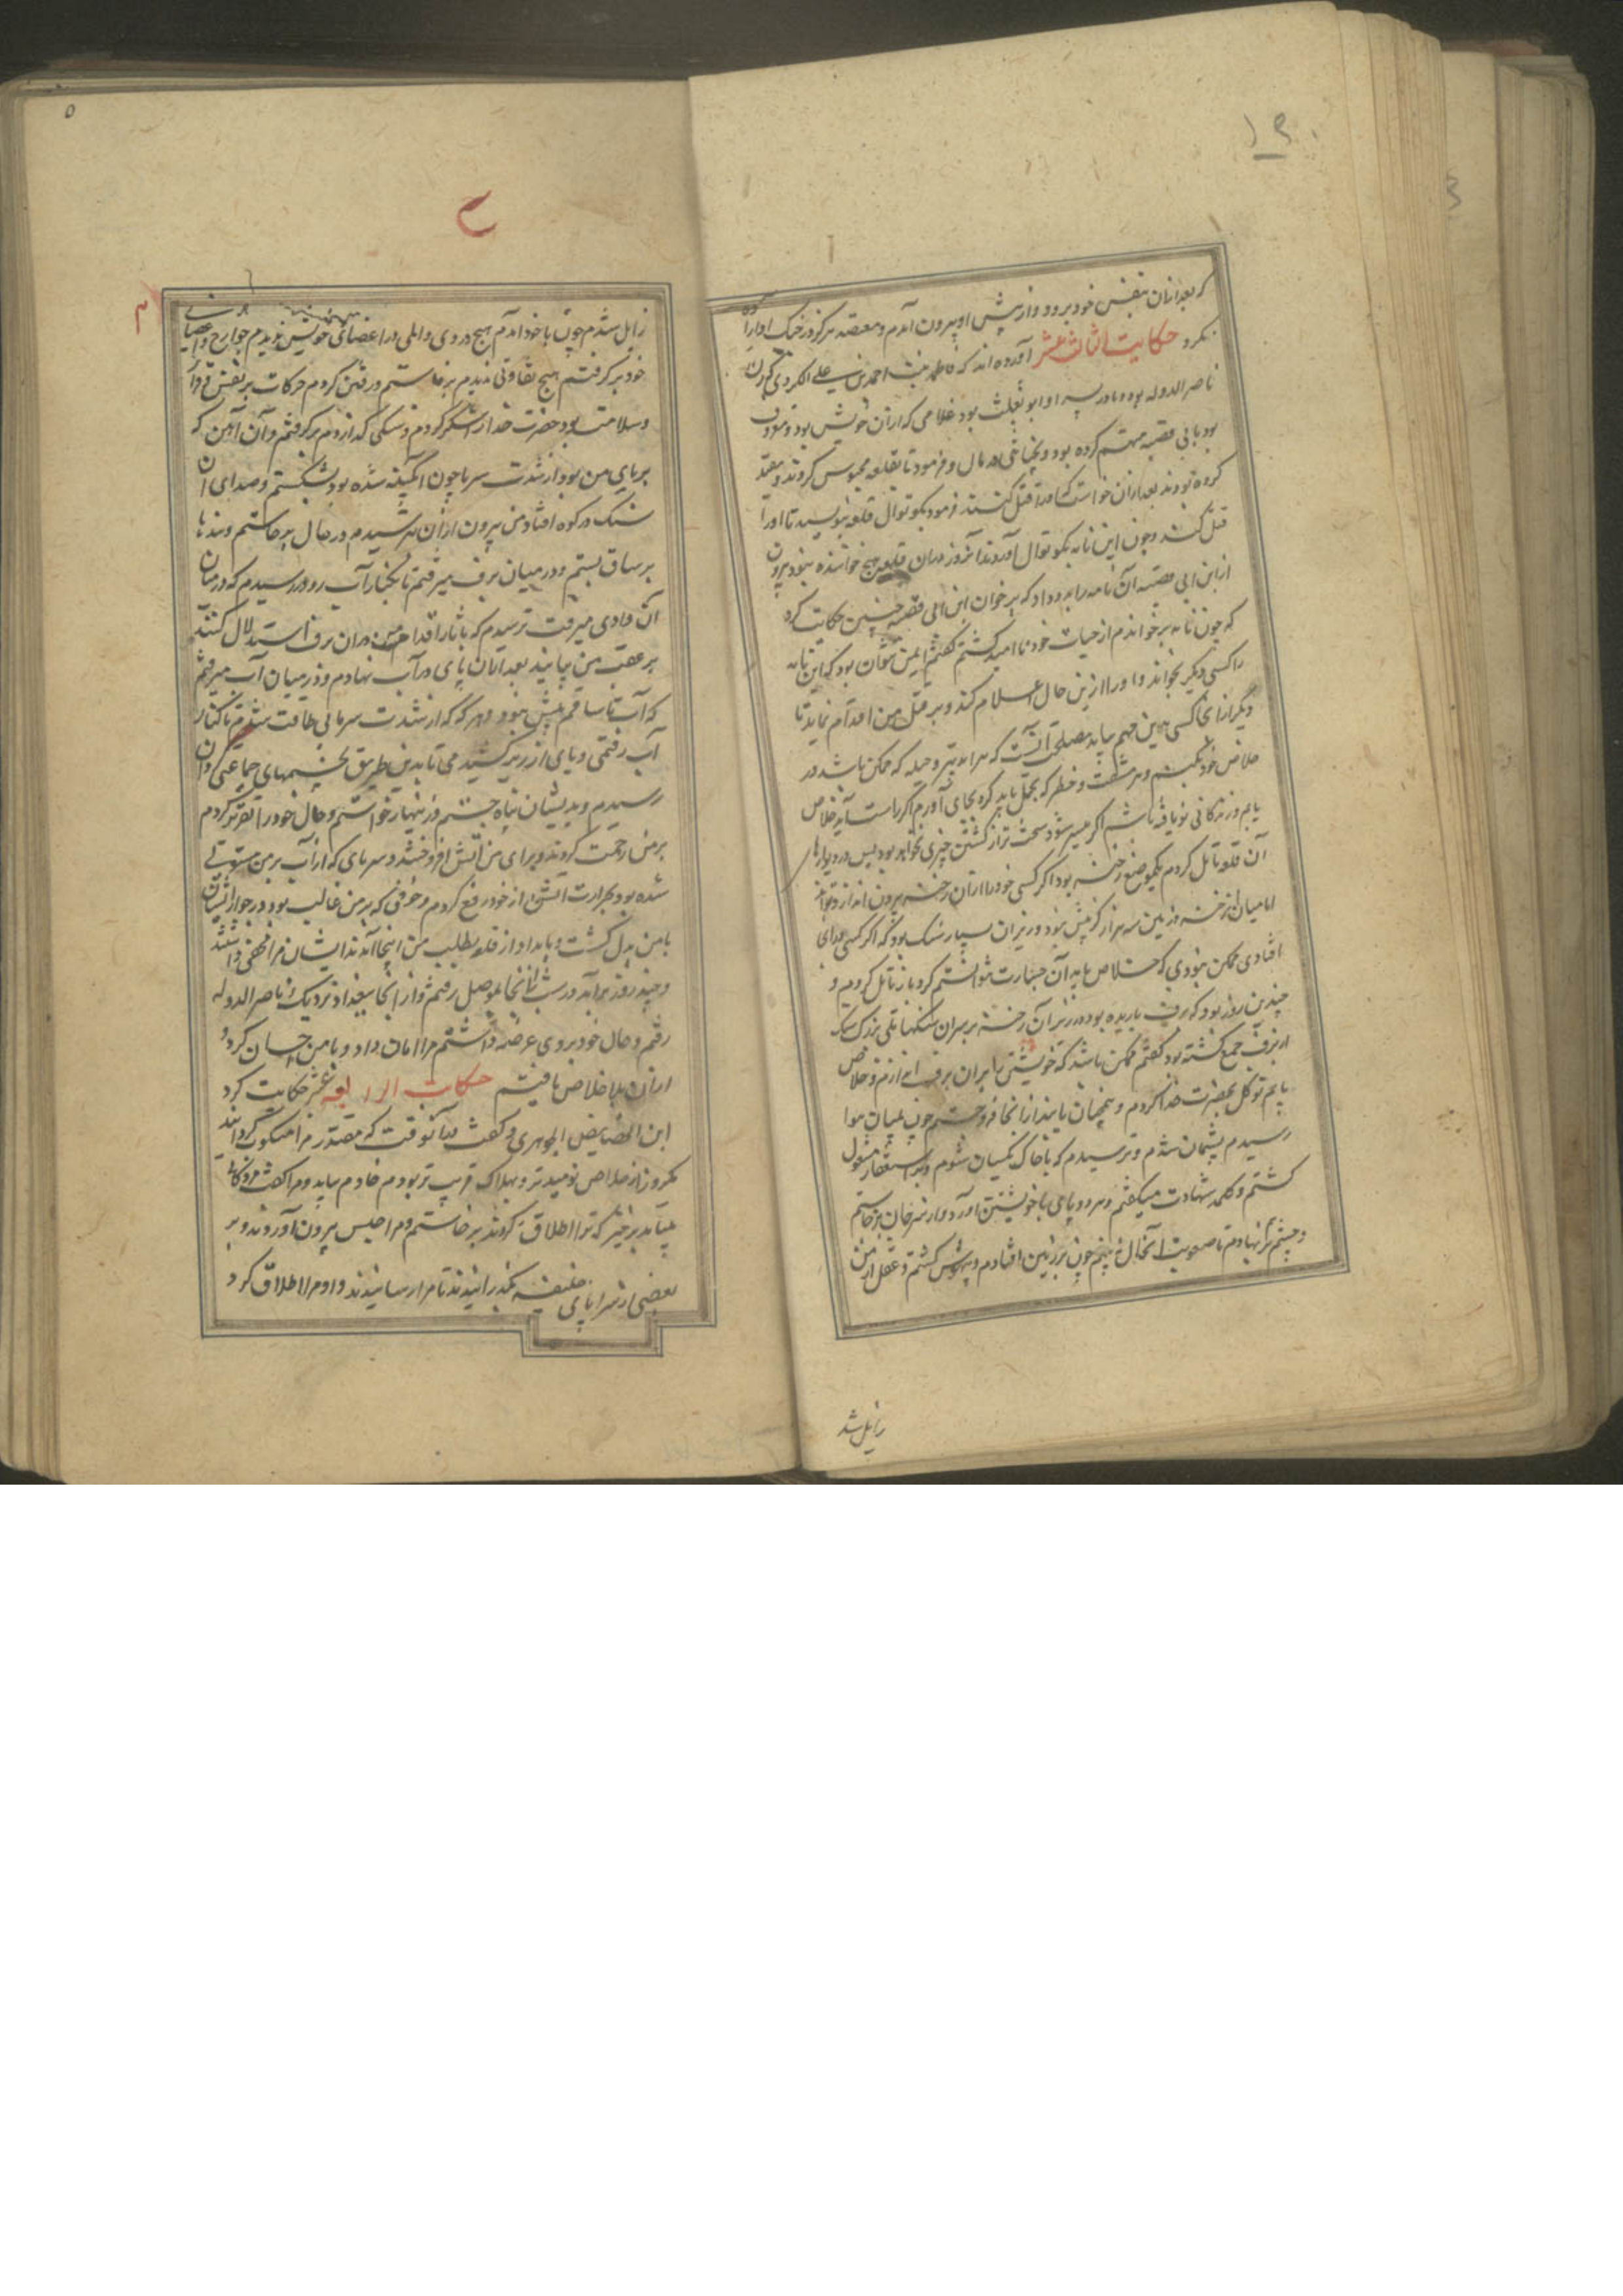 که بعد ازان بنفس خود برود و از پیش او بیرون آمدم و معتضد هرگز در جنگ او را
نکرد حکایت الثالث عشر آورده اند که فاطمه بنت احمد بن علی الکردی که زن
ناصر الدوله بود و مادر پسر او ابو تغلب بود غلامی که ازان خویش بود و معروف
بود بابی قصبه متهم کرده بود و بخیانتی در مال و فرمود تا بقلعه محبوس کردند و مقید
کرده بودند بعد ازان خواست که او را قتل کنند فرمود بکوتوال قلعه بنویسید تا او را
قتل کند و چون این نامه بکوتوال آوردند آنروز دران قلعه هیچ خواننده نبود بیرون
از ابن ابی قصبه آن نامه را بدو داد که برخوان ابن ابی قصبه چنین حکایت کرد
که چون نامه برخواندم از حیات خود نا امید گشتم گفتم ایمن نتوان بود که این نامه
را کسی دیگر بخواند و او را ازین حال اعلام کند و بر قتل من اقدام نماید تا
دیگر از انجا کسی بدین مهم بیاید مصلحت آنست که هر تدبیر و حیله که ممکن باشد در
خلاص خود بکنم و هر مشقت و خطر که تحمل باید کرد بجای آورم اگر راست آید خلاص
یابم و زندگانی نو یافته باشم اگر میسر نشود سخت تر از کشتن چیزی نخواهد بود پس در دیوارها
آن قلعه تامل کردم بیکموضع رخنه بود اگر کسی خود را ازان رخنه بیرون اندازد تواند
اما میان آن رخنه و زمین سه هزار گز بیش بود و در زیر آن بسیار سنگ بود که اگر کسی بر آنجا
افتادی ممکن نبودی که خلاص یابد آن جسارت نتوانستم کرد باز تامل کردم و
چندین روز بود که برف باریده بود و در زیر آن رخنه بر سر آن سنگها تلی بزرگ
از برف جمع گشته بود گفتم ممکن باشد که خویشتن را بران برف اندازم و خلاص
یابم توکل بحضرت خدا کردم و همچنان با بند از انجا فرو جستم چون بمیان هوا
رسیدم پشیمان شدم و ترسیدم که با خاک یکسان شوم و باستغفار مشغول
گشتم و کلمه شهادت میگفتم و هر دو پای با خویشتن آوردم و از سر جان برخاستم
و چشم بر نهادم تا صعوبت آنحال نبینم چون بر زمین افتادم بیهوش گشتم و عقل از من
زایل شد
زایل شدم چون با خود آمدم هیچ دردی و المی در اعضای خویش ندیدم جوارح و اعضای
خود بر گرفتم هیچ تفاوتی ندیدم برخاستم و رفتن کردم حرکات بر نفس قرار
و سلامت بود حضرت خدا را شکر کردم و سنگی گران بر گرفتم و آن آهن که
بر پای من بود از شدت سرما چون آبگینه شده بود بشکستم و صدای آن
سنگ در کوه افتاد من بیرون ازان بترسیدم در حال برخاستم و بندها
بر ساق بستم و در میان برف میرفتم تا بکنار آب رود رسیدم که در میان
آن وادی میرفت ترسیدم که باثار اقدام من دران برف استدلال کنند
بر عقب من بیایند بعد ازان پای در آب نهادم و در میان آب میرفتم
که آب تا ساقم بیش نبود و هر گه که از شدت سرما بی طاقت شدم تا کنار
آب رفتمی و پای از زیر کشیدمی تا بدین طریق بخیمهای جماعتی کردان
رسیدم و بدیشان پناه جستم و زینهار خواستم و حال خود را تقریر کردم
بر من رحمت کردند و برای من آتش افروختند و سرمای که از آب بر من مستولی
شده بود بحرارت آتش از خود رفع کردم و خوفی که بر من غالب بود در جوار ایشان
با من بدل گشت و بامداد از قلعه بطلب من اینجا آمدند ایشان مرا مخفی داشتند
و چند روز برآمد در شب از آنجا بموصل رفتم و از آنجا ببغداد نزدیک ناصر الدوله
رفتم و حال خود بروی عرضه داشتم مرا امان داد و با من احسان کرد و
ازان بلا خلاص یافتم حکایت الرابعه عشر حکایت کرد
ابن الجصاص الجوهری و گفت بدانوقت که مقتدر مرا منکوب گردانید
یکروز از خلاص نومیدتر و بهلاک قریب تر بودم خادم بیامد و مرا گفت مژدگانی
بیاید برخیز که ترا اطلاق کردند برخاستم و مرا از حبس بیرون آوردند و بر
بعضی از سراهای خلیفه بگذرانیدند تا مرا رسانیدند و او مرا اطلاق کرد